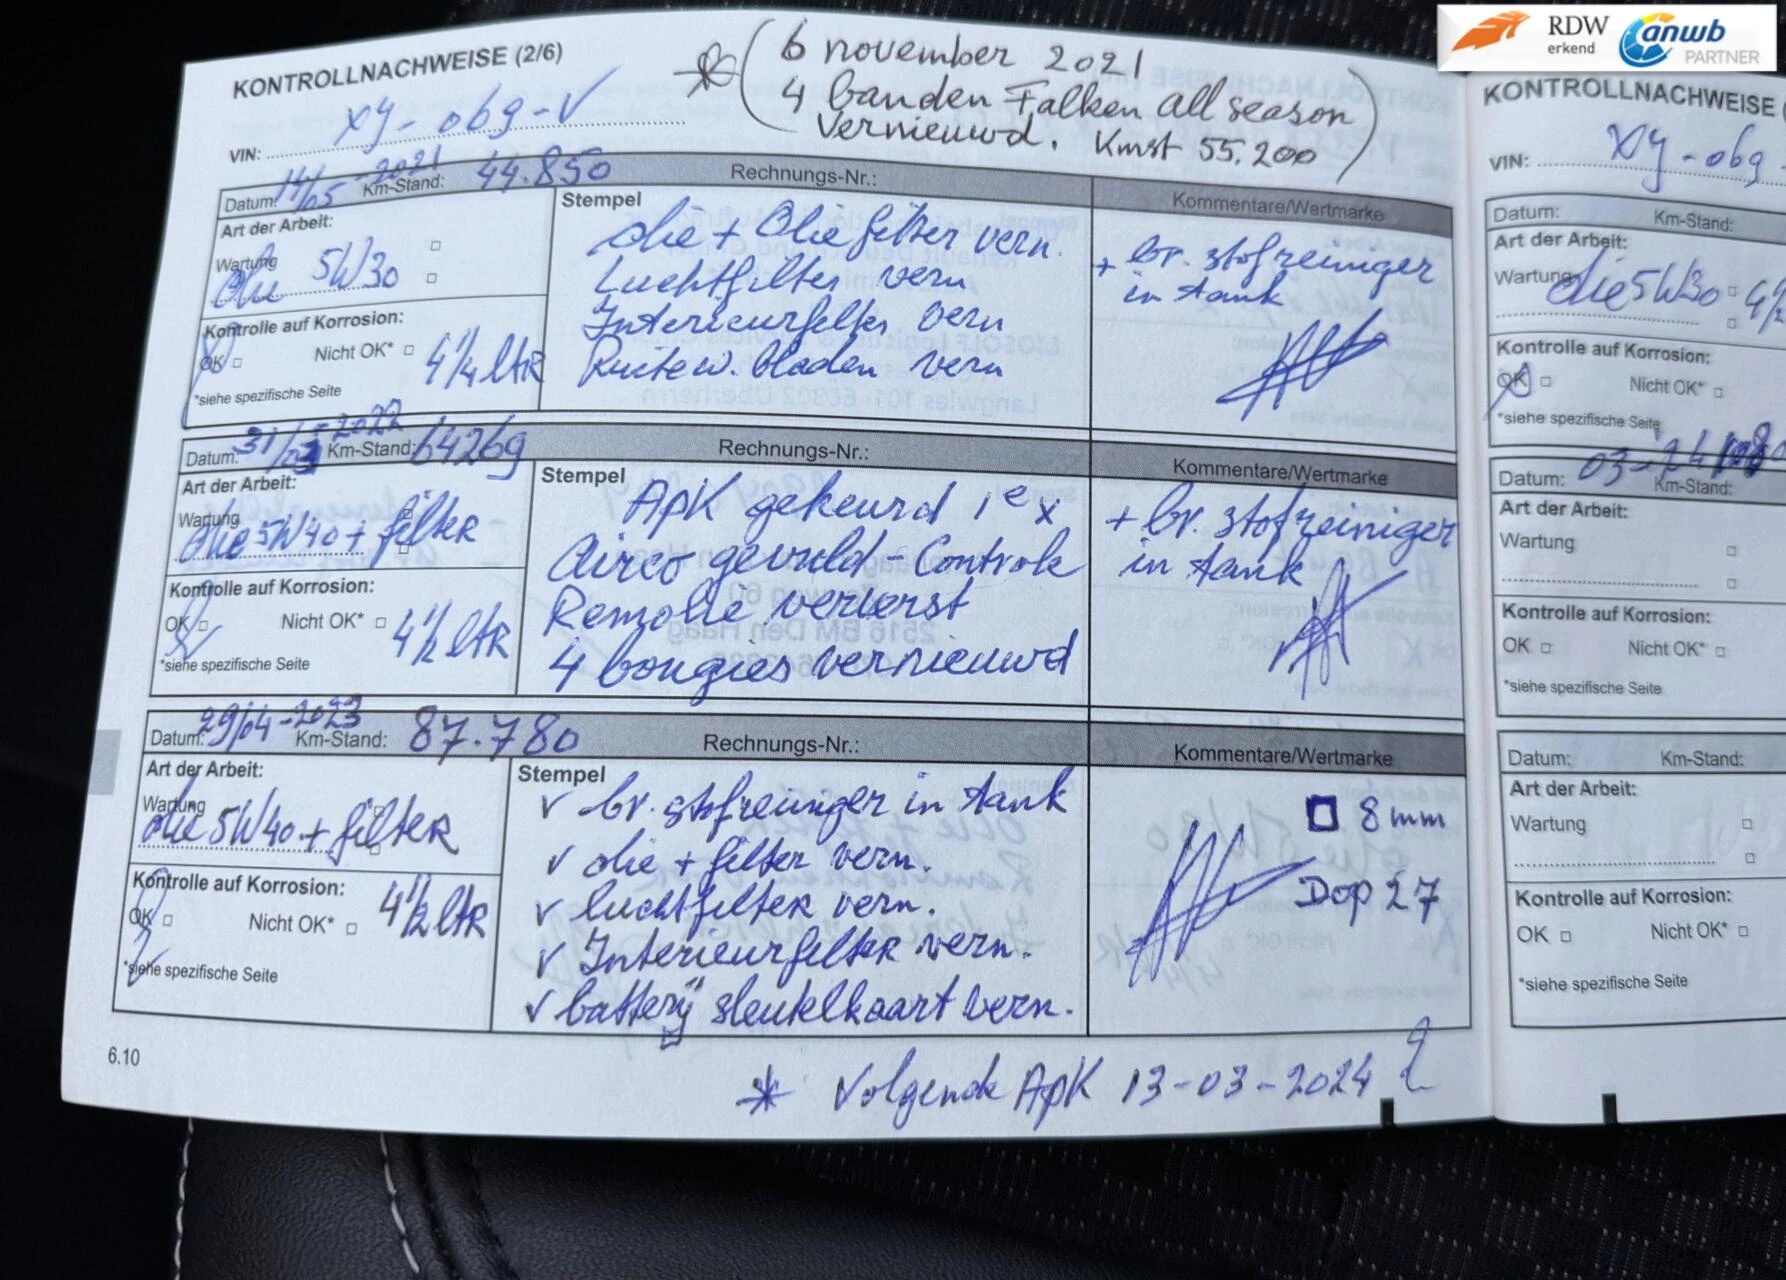 RDW
erkend
anwb
PARTNER
KONTROLLNACHWEISE (2/6)
* ( 6 november 2021
4 banden Falken all season
vernieuwd. Kmst 55.200 )
VIN: XJ-069-V
Datum: 14/05-2021 Km-Stand: 44.850 Rechnungs-Nr.:
Art der Arbeit:
Stempel
Kommentare/Wertmarke
Wartung
Olie 5W30
Kontrolle auf Korrosion:
OK Nicht OK* 4 1/4 ltr
*siehe spezifische Seite
Olie + Oliefilter vern.
Luchtfilter vern
Interieurfilter vern
Ruitew. bladen vern
+ br. stofreiniger
in tank
Datum: 31/03 2022 Km-Stand: 64269 Rechnungs-Nr.:
Art der Arbeit:
Stempel
Kommentare/Wertmarke
Wartung
Olie 5W40 + filter
Kontrolle auf Korrosion:
OK Nicht OK* 4 1/2 ltr
*siehe spezifische Seite
Apk gekeurd 1e x
Airco gevuld - Controle
Remolie ververst
4 bougies vernieuwd
+ br. stofreiniger
in tank
Datum: 29/04-2023 Km-Stand: 87.780 Rechnungs-Nr.:
Art der Arbeit:
Stempel
Kommentare/Wertmarke
Wartung
Olie 5W40 + filter
Kontrolle auf Korrosion:
OK Nicht OK* 4 1/2 ltr
*siehe spezifische Seite
✓ br. stofreiniger in tank
✓ olie + filter vern.
✓ luchtfilter vern.
✓ Interieurfilter vern.
✓ batterij sleutelkaart vern.
□ 8 mm
Dop 27
6.10
* Volgende Apk 13-03-2024
KONTROLLNACHWEISE
VIN: XJ-069
Datum: Km-Stand:
Art der Arbeit:
Wartung
Olie 5W30 4 1/2
Kontrolle auf Korrosion:
OK Nicht OK*
*siehe spezifische Seite
Datum: 03-24 Km-Stand:
Art der Arbeit:
Wartung
Kontrolle auf Korrosion:
OK Nicht OK*
*siehe spezifische Seite
Datum: Km-Stand:
Art der Arbeit:
Wartung
Kontrolle auf Korrosion:
OK Nicht OK*
*siehe spezifische Seite